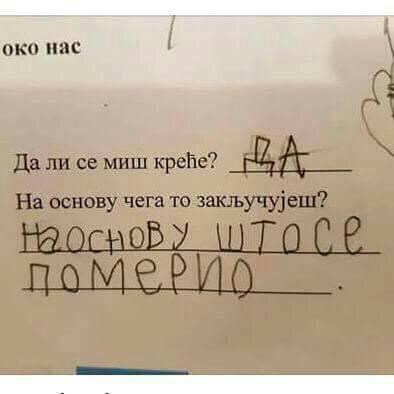 око нас
Да ли се миш креће? ДА
На основу чега то закључујеш?
На основу што се
померио.